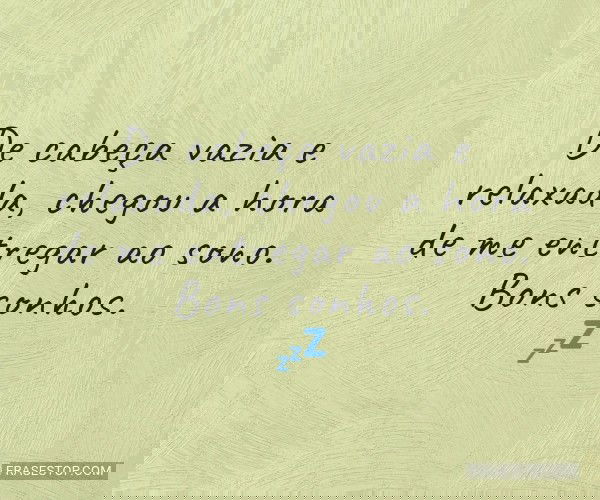 De cabeça vazia e
relaxada, chegou a hora
de me entregar ao sono.
Bons sonhos.
FRASESTOP.COM